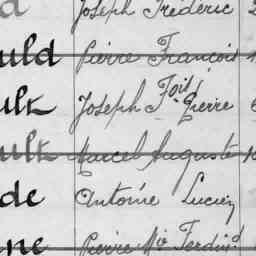 d Joseph Frédéric
uld Pierre François
ult Joseph Fois Pierre
ult Marcel Auguste
de Antoine Lucien
ne Pierre Mie Ferdind